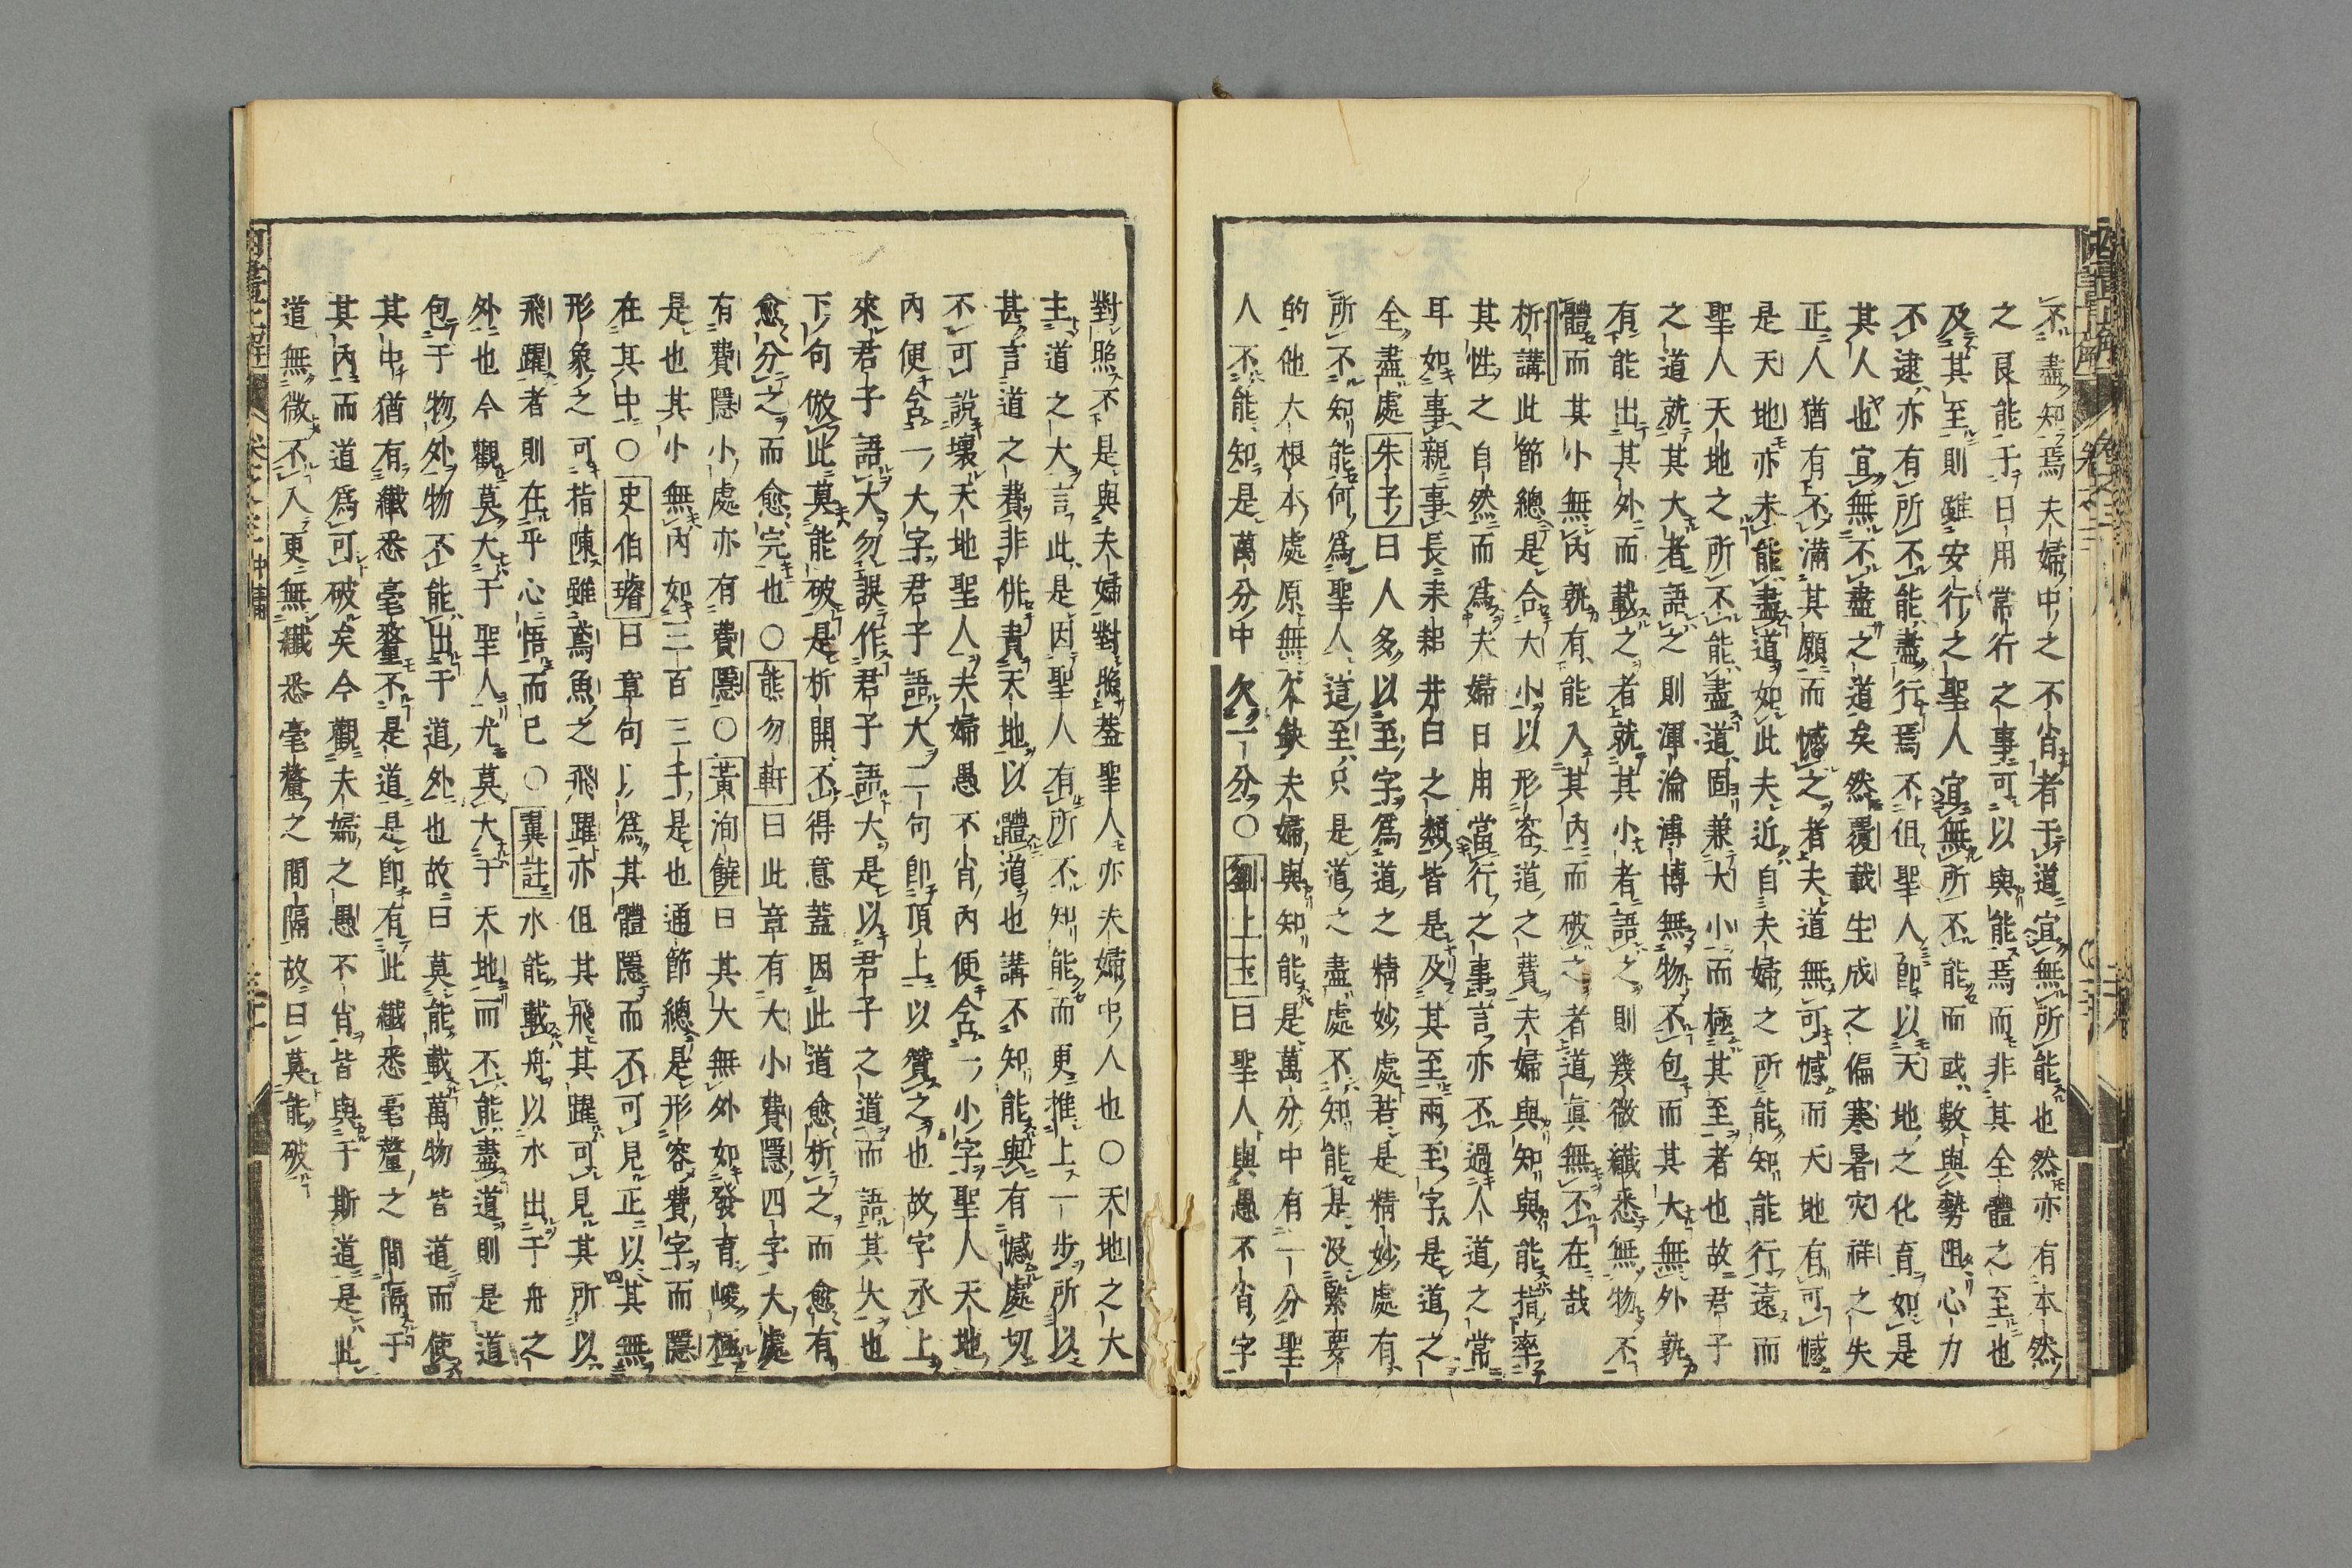 不盡知焉夫婦中之不肖者于道宜無所能也然亦有本然
之良能于日用常行之事可以與能焉而非其全體之至也
及其至則雖安行之聖人宜無所不能而或數與勢阻心力
不逮亦有所不能盡行焉不但聖人卽以天地之化育如是
其人也宜無不盡之道矣然覆載生成之偏寒暑灾祥之失
正人猶有不滿其願而憾之者夫道無可憾而天地有可憾
是天地亦未能盡道如此夫近自夫婦之所能知能行遠而
聖人天地之所不能盡道固兼大小而極其至者也故君子
之道就其大者語之則渾淪溥博無物不包而其大無外孰
有能出其外而載之者就其小者語之則幾微纖悉無物不
體而其小無內孰有能入其內而破之者道眞無不在哉
析講此節總是合大小以形容道之費夫婦與知與能指率
其性之自然而爲夫婦日用當行之事言亦不過人道之常
耳如事親事長耒耜井臼之類皆是及其至兩至字是道之
全盡處朱子曰人多以至字爲道之精妙處若是精妙處有
所不知能何爲聖人這至只是道之盡處不知能是沒緊要
的他大根本處原無不缺夫婦與知能是萬分中有一分聖
人不能知是萬分中欠一分○劉上玉曰聖人與愚不肖字
對照不是與夫婦對照蓋聖人亦夫婦中人也○天地之大
主道之大言此是因聖人有所不知能而更推上一步所以
甚言道之費非併責天地以體道也講不知能與有憾處切
不可說壞天地聖人夫婦愚不肖內便含一小字聖人天地
內便含一大字君子語大二句卽頂上以贊之也故字承上
來君子語大勿誤作君子語大是以君子之道而語其大也
下句倣此莫能破是析開不得意蓋因此道愈析之而愈有
愈分之而愈完也○熊勿軒曰此章有大小費隱四字大處
有費隱小處亦有費隱○黃洵饒曰其大無外如發育峻極
是也其小無內如三百三千是也通節總是形容費字而隱
在其中○史伯璿曰章句以爲其體隱而不可見正以其無
形象之可指陳雖鳶魚之飛躍亦但其飛其躍可見其所以
飛躍者則在乎心悟而已○翼註水能載舟以水出于舟之
外也今觀莫大于聖人尤莫大于天地而不能盡道則是道
包于物外物不能出于道外也故曰莫能載萬物皆道而使
其中猶有纖悉毫釐不是道是卽有此纖悉毫釐之間隔于
其內而道爲可破矣今觀夫婦之愚不肖皆與于斯道是此
道無微不入更無纖悉毫釐之間隔故曰莫能破